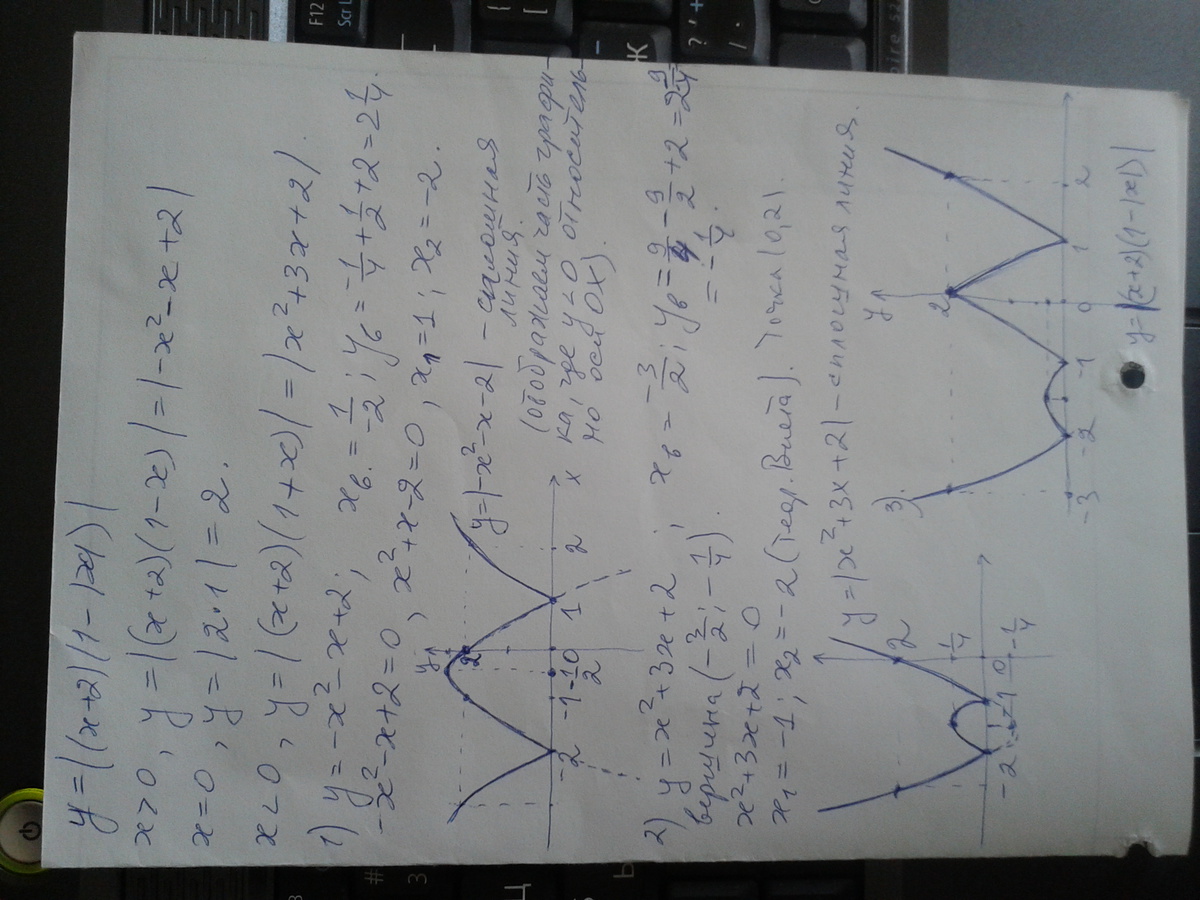 y=|(x+2)(1-|x|)|
x>0, y=|(x+2)(1-x)|=|-x²-x+2|
x=0, y=|2·1|=2.
x<0, y=|(x+2)(1+x)|=|x²+3x+2|.
1) y=-x²-x+2; xв.=1/-2; yв=-1/4+1/2+2=2 1/4.
-x²-x+2=0, x²+x-2=0, x₁=1; x₂=-2.
y=|-x²-x-2| - сплошная
линия.
(отображаем часть графи-
ка, где y<0 относитель-
но оси OX).
y
2
-2 -1 -1/2 0 1 2 x
2) y=x²+3x+2; xв=-3/2; yв=9/4-9/2+2=2 9/4
=-1/4.
вершина (-3/2; -1/4).
x²+3x+2=0
x₁=-1; x₂=-2 (теор. Виета). Точка (0,2).
y=|x²+3x+2| - сплошная линия.
2
1/4
-2 -1 0
-1/4
3)
y
2
-3 -2 -1 0 1 2
y=|(x+2)(1-|x|)|
F12
Scr
#
3
Ц
Ь
{
[
-
Ж
?
+
/
.